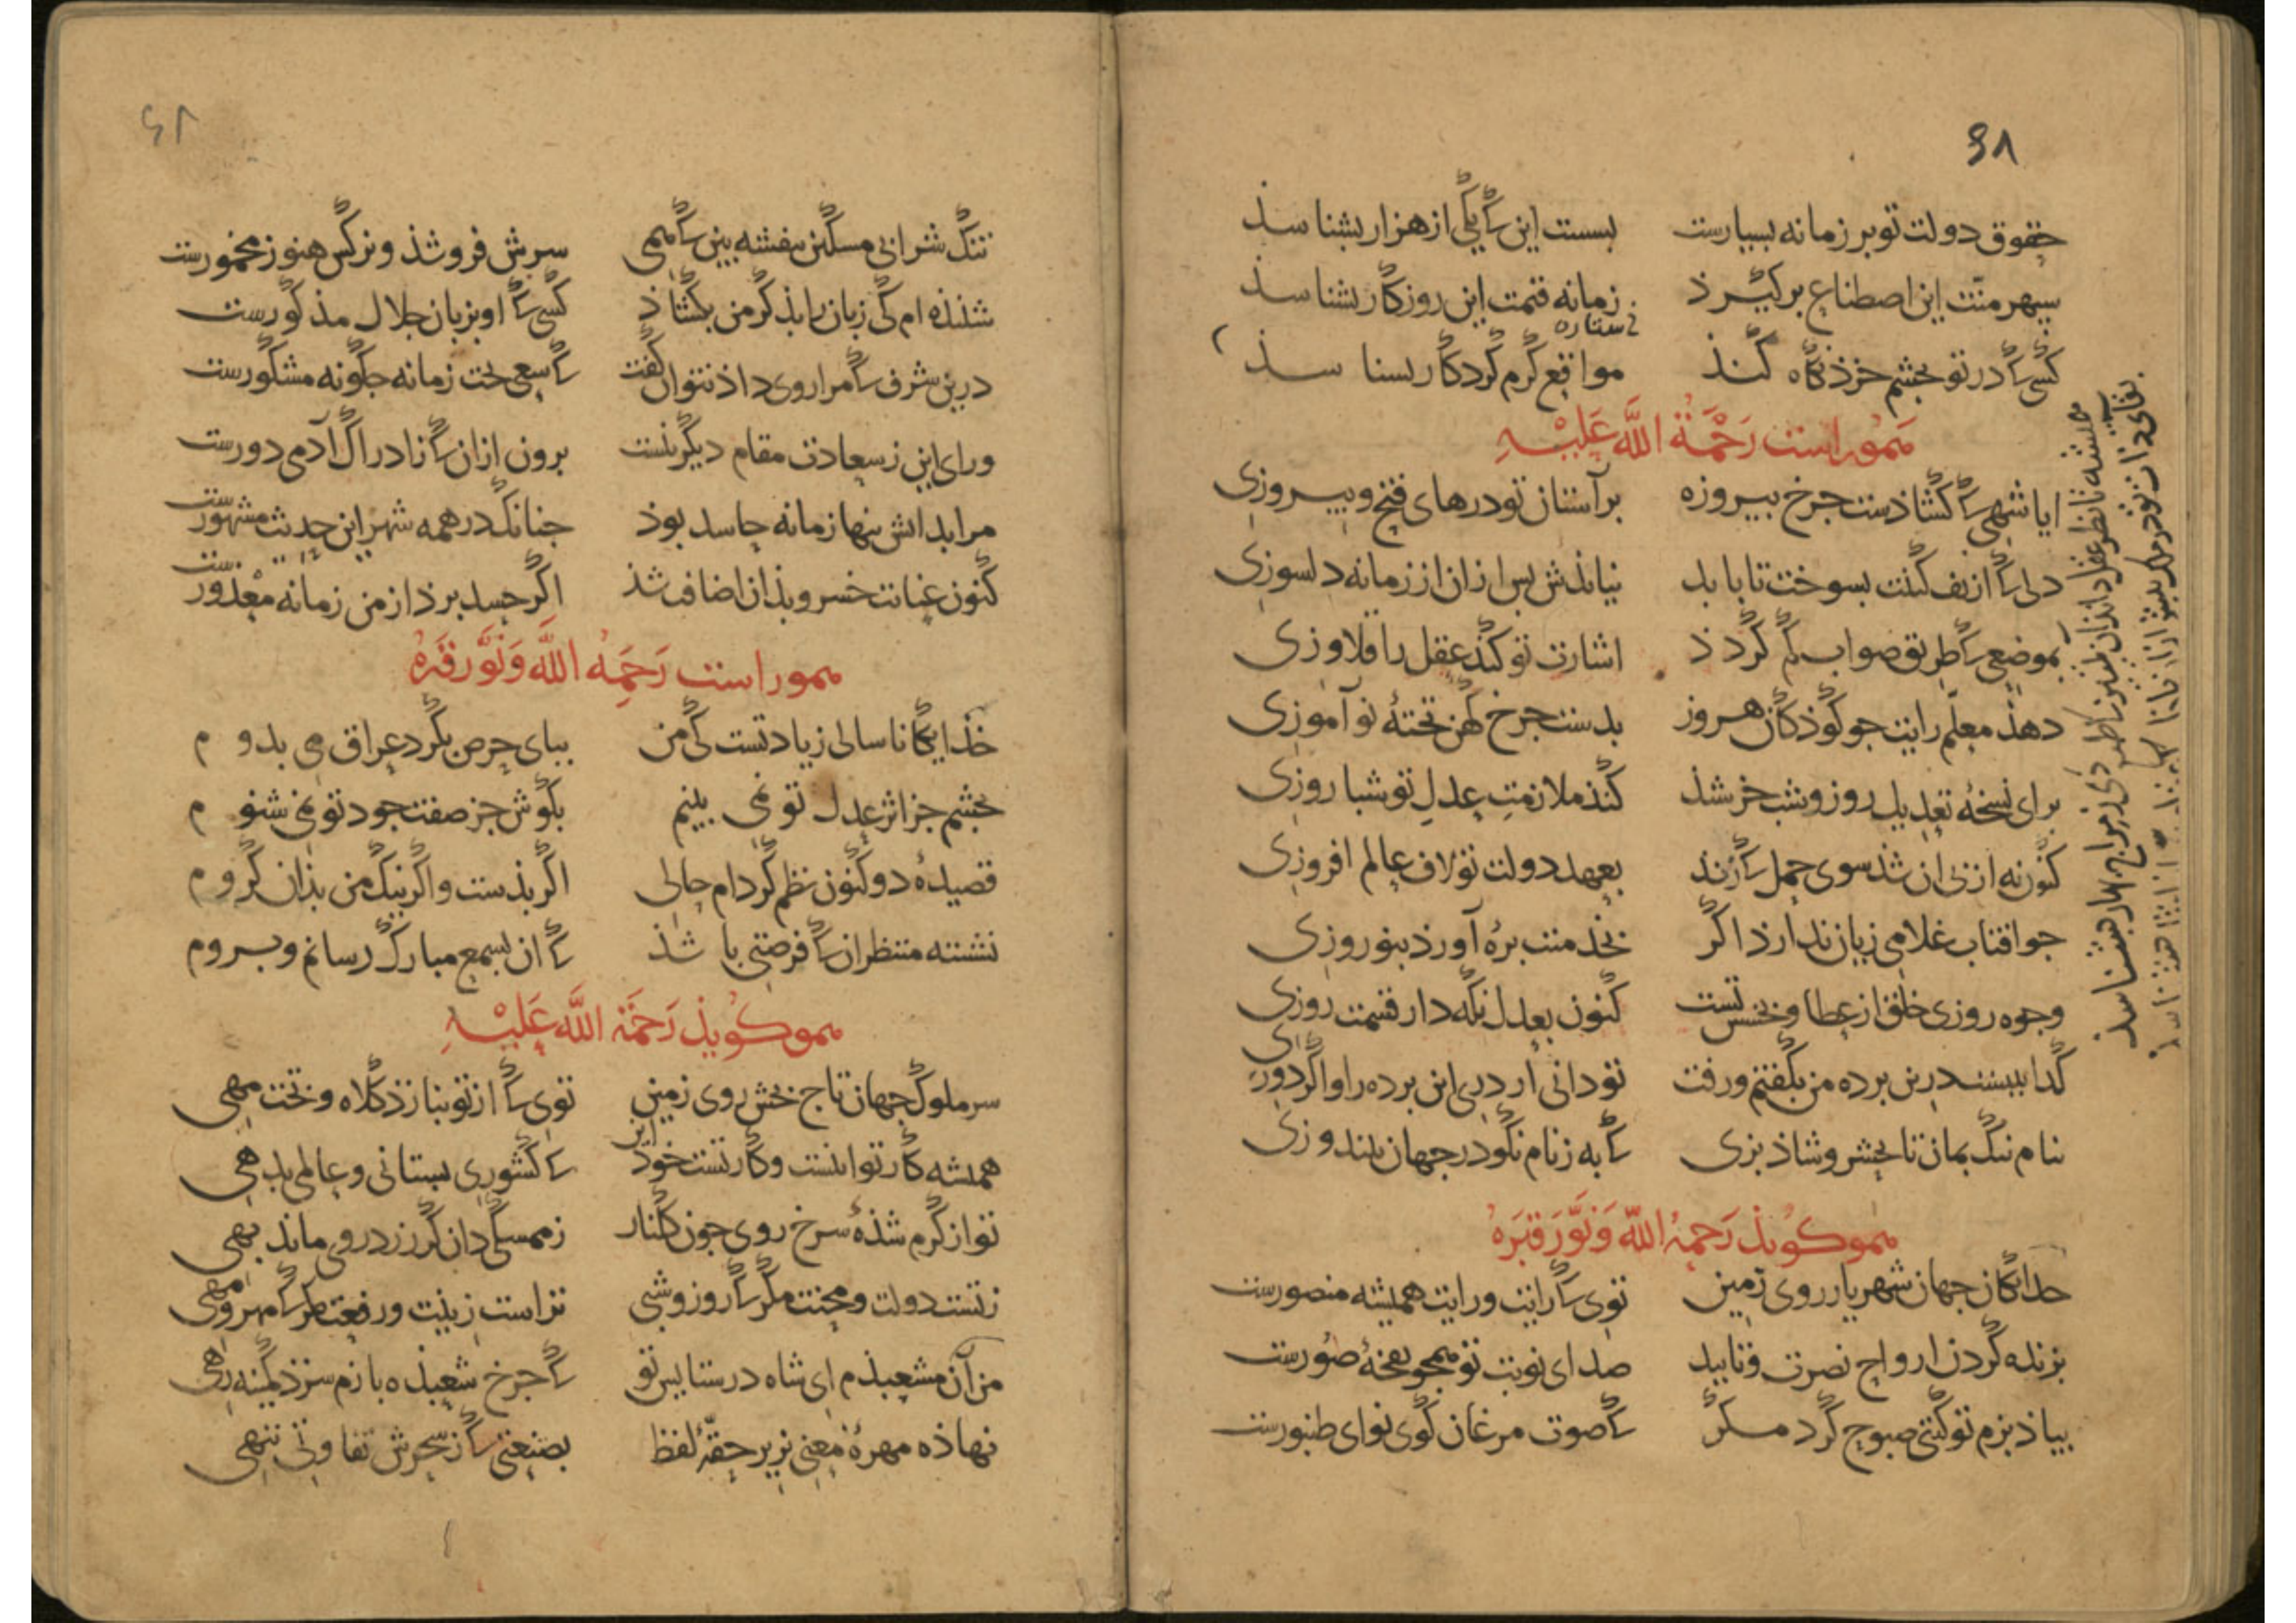 ۶۸
حقوق دولت تو بر زمانه بسیارست بسست این کی یکی از هزار بشناسذ
سپهر منّت این اصطناع برکیرذ زمانه قیمت این روزکار بشناسذ
ستاره
کسی کی در تو بجشم خرذ نکاه کنذ مواقع کرم کردکار بشناسذ
هموراست رَحْمَةُ اللَّه عَلَیْهِ
ایا شهی کی کشاذست جرخ بیروزه بر آستان تو درهای فتح و بیروزی
دلی کی از تف کینت بسوخت تا بابد نیایذش بس ازان از زمانه دلسوزی
بموضعی کی طریق صواب کم کردذ اشارت تو کند عقل را قلاوزی
دهذ معلّم رایت جو کوذکان هر روز بدست جرخ کهن تختهٔ نوآموزی
برای نسخهٔ تعدیل روز و شب خرشذ کنذ ملازمتِ عدلِ تو شباروزی
کنون نه از بی آن شذ سوی حمل کی زند بعهد دولت تو لاف عالم افروزی
جو افتاب غلامی زیان ندارذ اکر بخذمتت برهٔ آورذ بنوروزی
وجوه روزی خلق از عطا و بخشش تست کنون بعدل نکه دار قسمت روزی
کدا ببیسند درین برده من بکفتم و رفت تو دانی ار دری این برده را و اکر دوزی
بنام نیک بمان تا بخشی و شاذ بزی کی به ز نام نکو در جهان نیندوزی
همو کویذ رَحِمَهُ اللّه وَنَوَّرَ قَبْرَهُ
خدایکان جهان شهریار روی زمین توی کی رایت و رایت همیشه منصورست
بزنده کردن ارواح نصرت و تایید صدای نوبت تو همجو نفخهٔ صُورست
بیاذ بزم تو کیتی صبوح کرد مکر کی صوت مرغان کوی نوای طنبورست
همیشه تا نظر عقل
بقای ذات تو در ملک بیش ازان باذا
تنک شرابی مسکین بنفشه بین کی همی سرش فروشذ و نرکس هنوز مخمورست
شنیذه ام کی زبان را بذکر من بکشاذ کسی کی او بزبان جلال مذکورست
درین شرف کی مرا روی داذ نتوان کفت کی سعی بخت زمانه جکونه مشکورست
ورای این ز سعادت مقام دیکر نیست برون ازان کی ز ادراک آدمی دورست
مرا بدانش بنها زمانه حاسد بوذ جنانک در همه شهر این حدیث مشهورست
کنون عنایت خسرو بذان اضافت شذ اکر حسد برذ از من زمانه معذورست
هموراست رَحِمَهُ اللَّه وَنَوَّرَ قَبْرَهُ
خذایکانا سالی زیادتست کی من ببای حرص بکرد عراق می بدوم
بجشم جز اثر عدل تو نمی بینم بکوش جز صفت جود تو نمی شنوم
قصیدهٔ دو کنون نظم کرده ام حالی اکر بذست و اکر نیک من بذان کروم
نشسته منتظر ان کی فرصتی باشذ کی ان بسمع مبارک رسانم و بروم
همو کویذ رَحْمَة اللَّه عَلَیْهِ
سر ملوک جهان تاج بخش روی زمین توی کی از تو بنازذ کلاه و تخت مهی
همیشه کار تو اینست و کار تست خود این کی کشوری بستانی و عالمی بدهی
تو از کرم شذهٔ سرخ روی جون کلنار ز ممسکی دان کر زرد روی ماند بهی
ز تست دولت و محنت مکر کی روز و شبی تراست زینت و رفعت مکر کی مهر و مهی
من آن مشعبذم ای شاه در ستایش تو کی جرخ شعبذه بازم سزذ کمینه رهی
نهاذه مهرهٔ معنی بزیر حقّهٔ لفظ بصنعتی کی ز سحرش تفاوتی ننهی